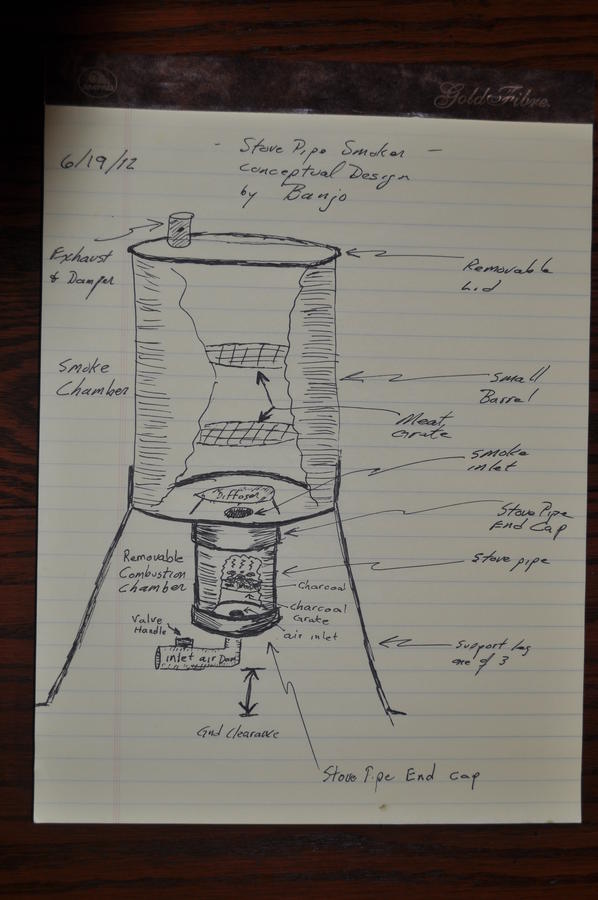 Gold Fibre
- Stove Pipe Smoker -
Conceptual Design
by Banjo
6/19/12
Exhaust
& Damper
Removable
Lid
Smoke
Chamber
Small
Barrel
Meat
Grate
Smoke
inlet
Diffuser
Stove Pipe
End Cap
Removable
Combustion
Chamber
Stove pipe
Charcoal
Charcoal
Grate
air inlet
Valve
Handle
inlet air Dam
Support Leg
one of 3
Gnd Clearance
Stove Pipe End Cap